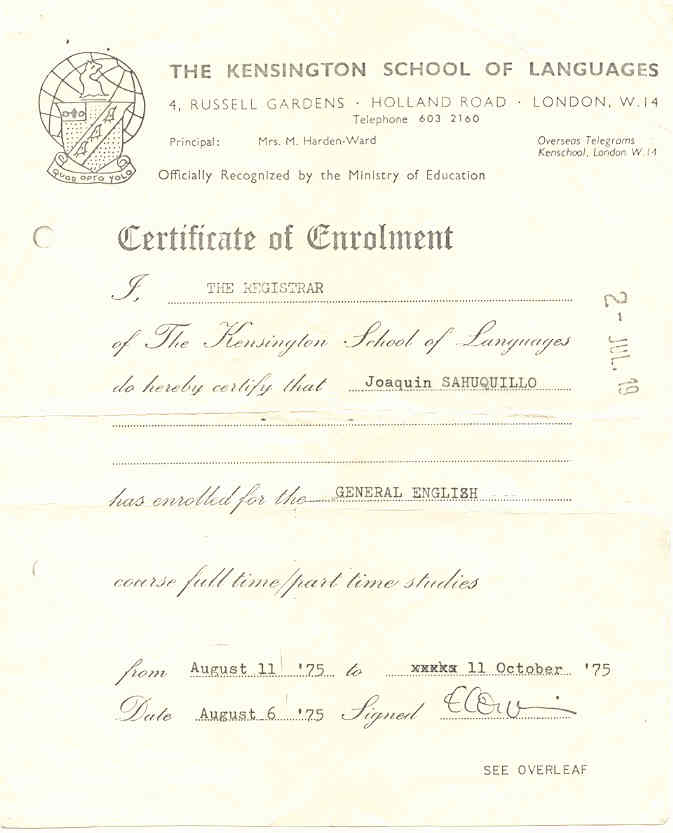 THE KENSINGTON SCHOOL OF LANGUAGES
4, RUSSELL GARDENS · HOLLAND ROAD · LONDON, W.14
Telephone 603 2160
Principal: Mrs. M. Harden-Ward
Overseas Telegrams
Kenschool, London W.14
Officially Recognized by the Ministry of Education
QUOD OPTO VOLO
Certificate of Enrolment
I, THE REGISTRAR
2 - JUL. 19
of The Kensington School of Languages
do hereby certify that Joaquin SAHUQUILLO
has enrolled for the GENERAL ENGLISH
course full time/part time studies
from August 11 '75 to xxxxx 11 October '75
Date August 6 '75 Signed
SEE OVERLEAF